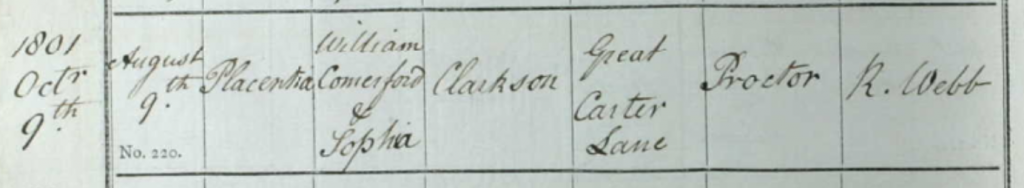 1801
Octr
9th
August
9th
No. 220.
Placentia
William
Comerford
&
Sophia
Clarkson
Great
Carter
Lane
Proctor
R. Webb